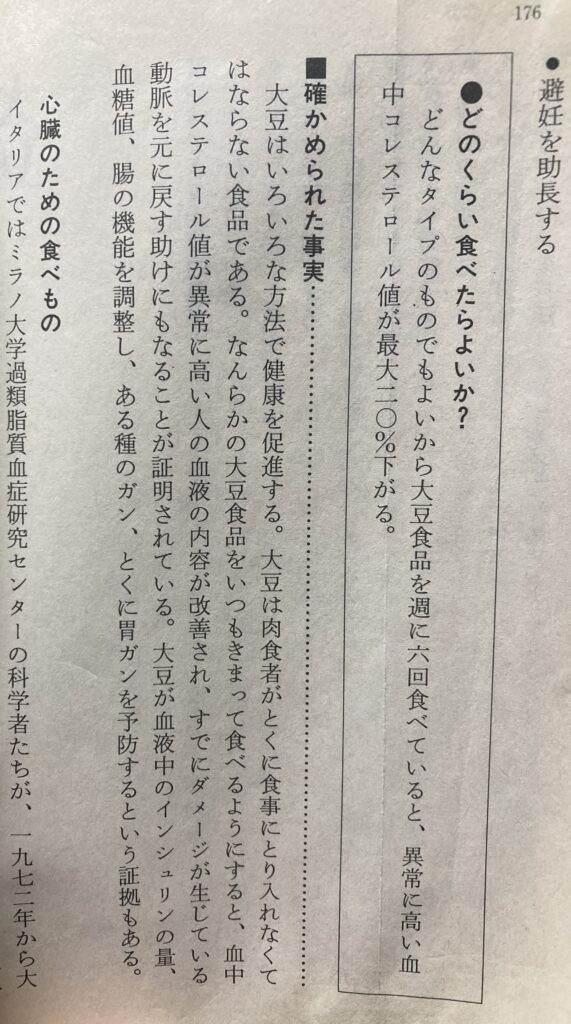 176
●避妊を助長する
●どのくらい食べたらよいか?
どんなタイプのものでもよいから大豆食品を週に六回食べていると、異常に高い血
中コレステロール値が最大二〇%下がる。
■確かめられた事実
大豆はいろいろな方法で健康を促進する。大豆は肉食者がとくに食事にとり入れなくて
はならない食品である。なんらかの大豆食品をいつもきまって食べるようにすると、血中
コレステロール値が異常に高い人の血液の内容が改善され、すでにダメージが生じている
動脈を元に戻す助けにもなることが証明されている。大豆が血液中のインシュリンの量、
血糖値、腸の機能を調整し、ある種のガン、とくに胃ガンを予防するという証拠もある。
心臓のための食べもの
イタリアではミラノ大学過類脂質血症研究センターの科学者たちが、一九七二年から大